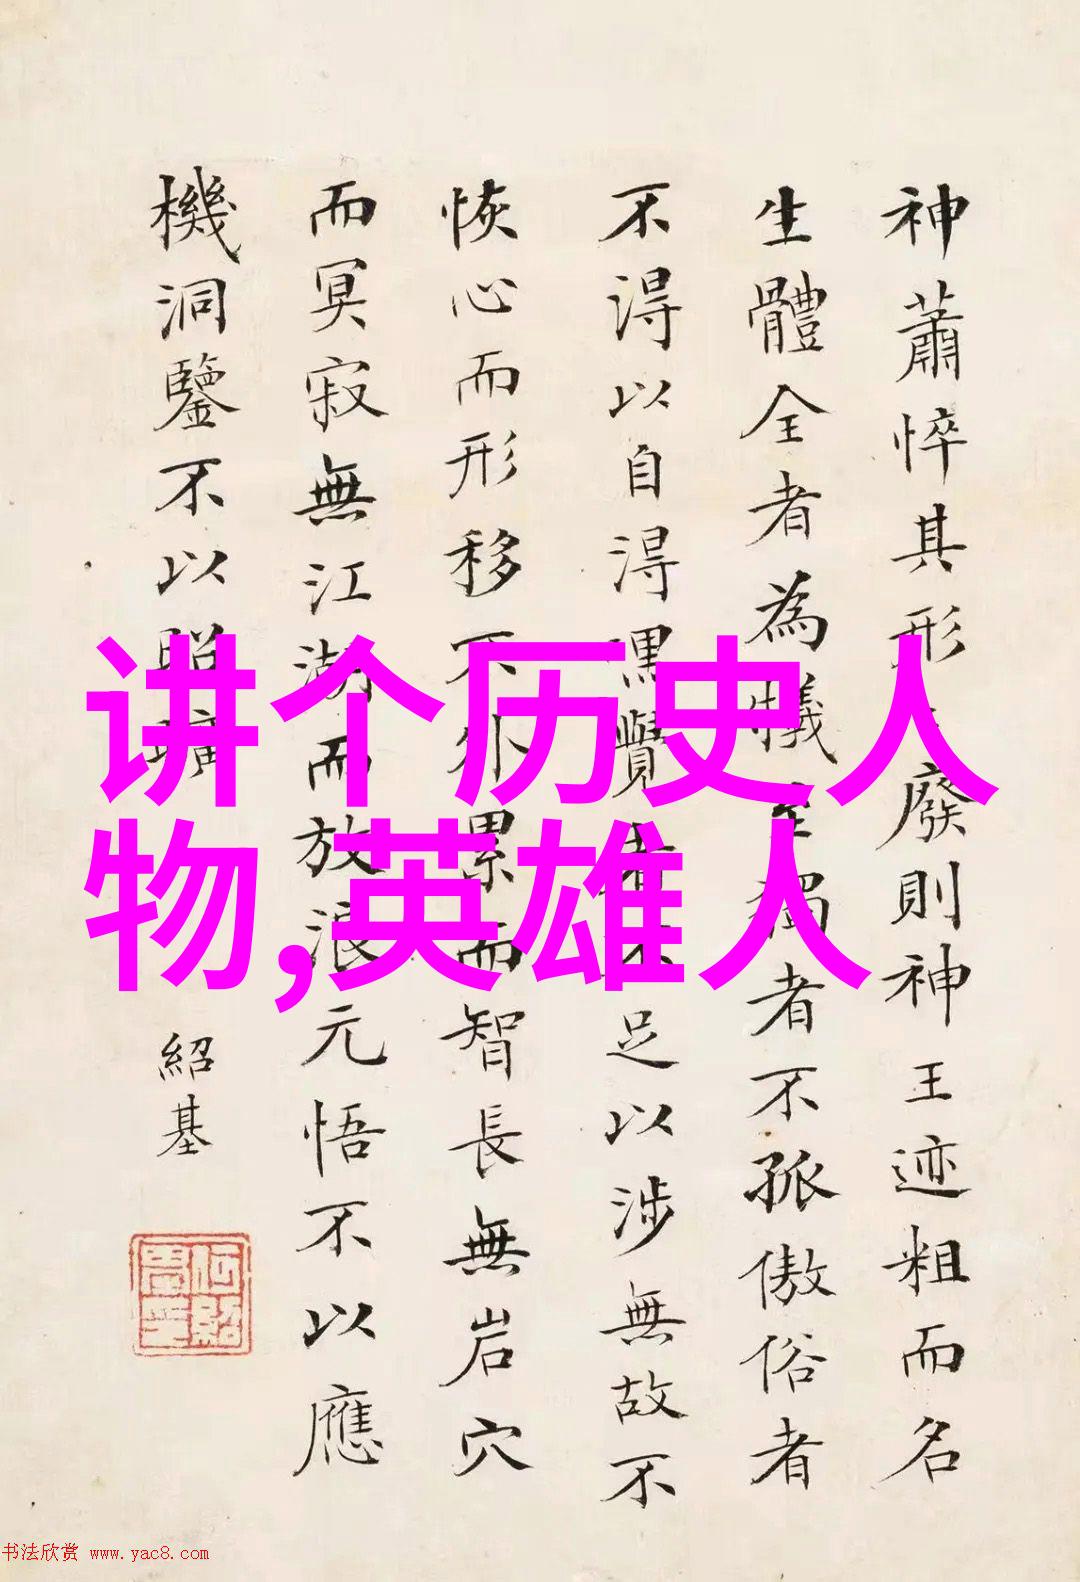 神蕭悴其形廢則神王迹粗而名
生體全者為犧生獨者不孤傲俗者
不得以自得默覺者不足以涉無故不
恢心而形移不外累而智長無岩穴
而冥寂無江湖而放浪元悟不以應
機洞鑒不以昭曠
紹基
讲个历史人
物,英雄人
书法欣赏 www.yac8.com